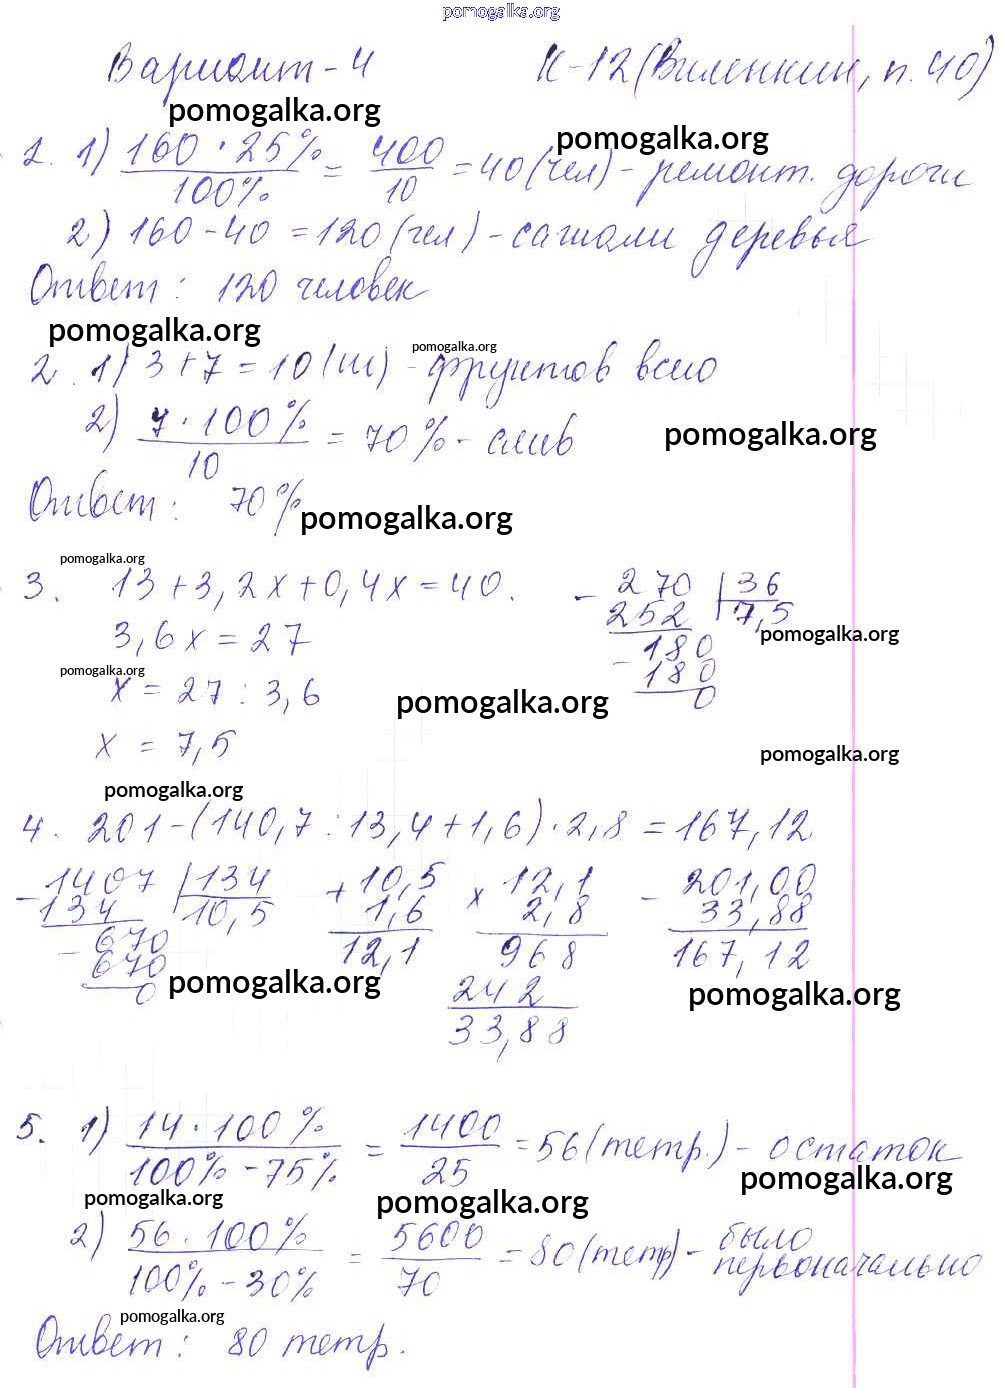 pomogalka.org
Вариант-4 К-12(Виленкин, п.40)
pomogalka.org
pomogalka.org
1. 1) 160·25%/100% = 400/10 = 40(чел) - ремонт. дороги
2) 160-40=120(чел) - сажали деревья
Ответ: 120 человек
pomogalka.org
pomogalka.org
2. 1) 3+7=10(ш) - фруктов всего
2) 7·100%/10 = 70% - слив
pomogalka.org
Ответ: 70%
pomogalka.org
pomogalka.org
3. 13+3,2x+0,4x=40.
3,6x=27
x=27:3,6
x=7,5
- 270 | 36
252 7,5
- 180
180
0
pomogalka.org
pomogalka.org
pomogalka.org
pomogalka.org
pomogalka.org
4. 201-(140,7:13,4+1,6)·2,8=167,12
- 1407 | 134
134 10,5
- 670
670
0
+ 10,5
1,6
12,1
× 12,1
2,8
968
242
33,88
- 201,00
33,88
167,12
pomogalka.org
pomogalka.org
5. 1) 14·100%/100%-75% = 1400/25 = 56(тетр.) - остаток
pomogalka.org
pomogalka.org
pomogalka.org
2) 56·100%/100%-30% = 5600/70 = 80(тетр) - было первоначально
pomogalka.org
Ответ: 80 тетр.